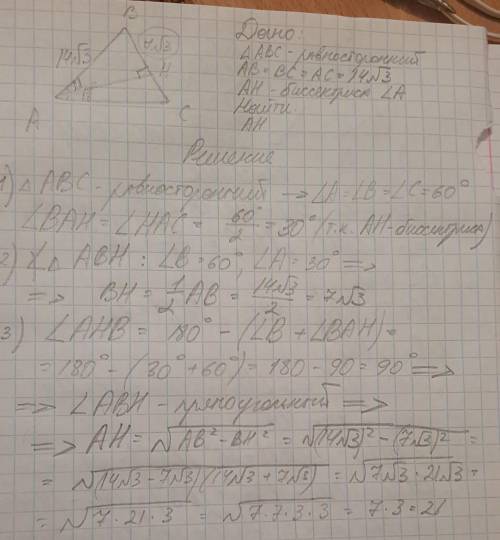 B
14√3
7√3
H
A
C
Дано:
∠ABC - равносторонний
AB = BC = AC = 14√3
AH - биссектриса ∠A
Найти:
AH
Решение
1) △ABC - равносторонний → ∠A = ∠B = ∠C = 60°
∠BAH = ∠HAC = 60°/2 = 30° (т.к. AH - биссектриса)
2) △ABH : ∠B = 60°, ∠A = 30° =>
=> BH = 1/2 AB = 14√3/2 = 7√3
3) ∠AHB = 180° - (∠B + ∠BAH) =
= 180° - (30° + 60°) = 180 - 90 = 90° =>
=> ∠ABH - прямоугольный =>
=> AH = √(AB² - BH²) = √((14√3)² - (7√3)²) =
= √((14√3 - 7√3)(14√3 + 7√3)) = √(7√3 · 21√3) =
= √(7 · 21 · 3) = √(7 · 7 · 3 · 3) = 7 · 3 = 21